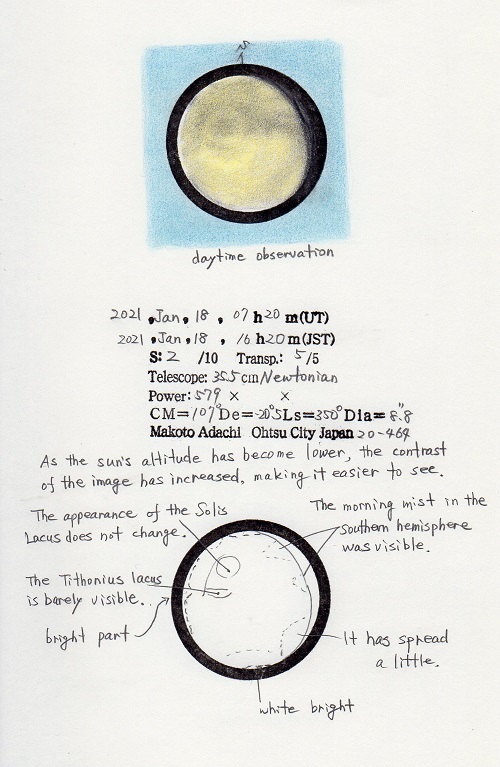 S
daytime observation
2021, Jan, 18, 07 h 20 m(UT)
2021, Jan, 18, 16 h 20 m(JST)
S: 2 /10 Transp.: 5/5
Telescope: 35.5 cm Newtonian
Power: 579 × ×
CM=107° De=-20°.5 Ls=350° Dia=8.″8
Makoto Adachi Ohtsu City Japan 20-464
As the sun's altitude has become lower, the contrast
of the image has increased, making it easier to see.
The appearance of the Solis
Lacus does not change.
The morning mist in the
southern hemisphere
was visible.
The Tithonius lacus
is barely visible.
bright part
It has spread
a little.
white bright